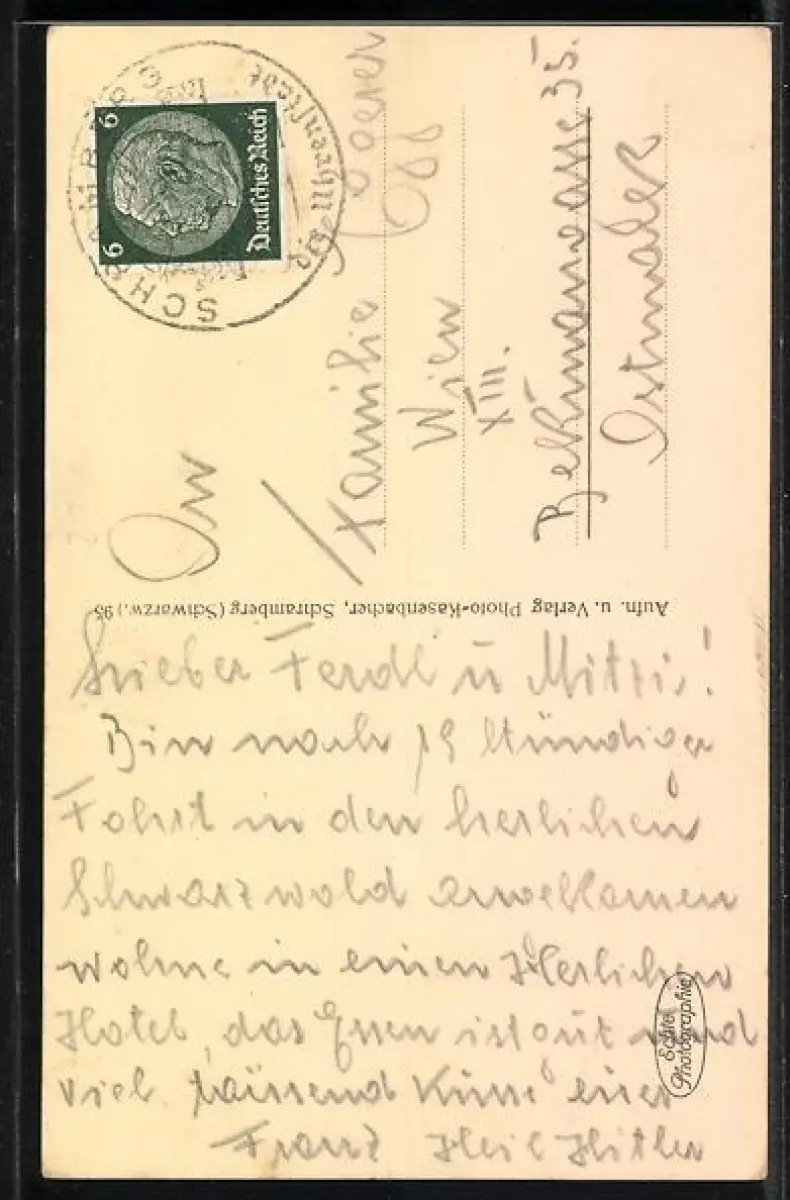 6 6
Deutsches Reich
SCHRAMBERG
die Uhrenstadt
An
Familie
Wien
XIII.
Beckmanngasse 35.
Ostmark
Aufn. u. Verlag Photo-Kasenbacher, Schramberg (Schwarzw.) 95
Lieber Ferdl u Mitzi!
Bin nach 19 stündiger
Fahrt in den herlichen
Schwarzwald
wohne in einen Herlichen
Hotel, das Essen ist gut und
viel. taussend Küsse euer
Franz Heil Hitler
Echte
Photographie